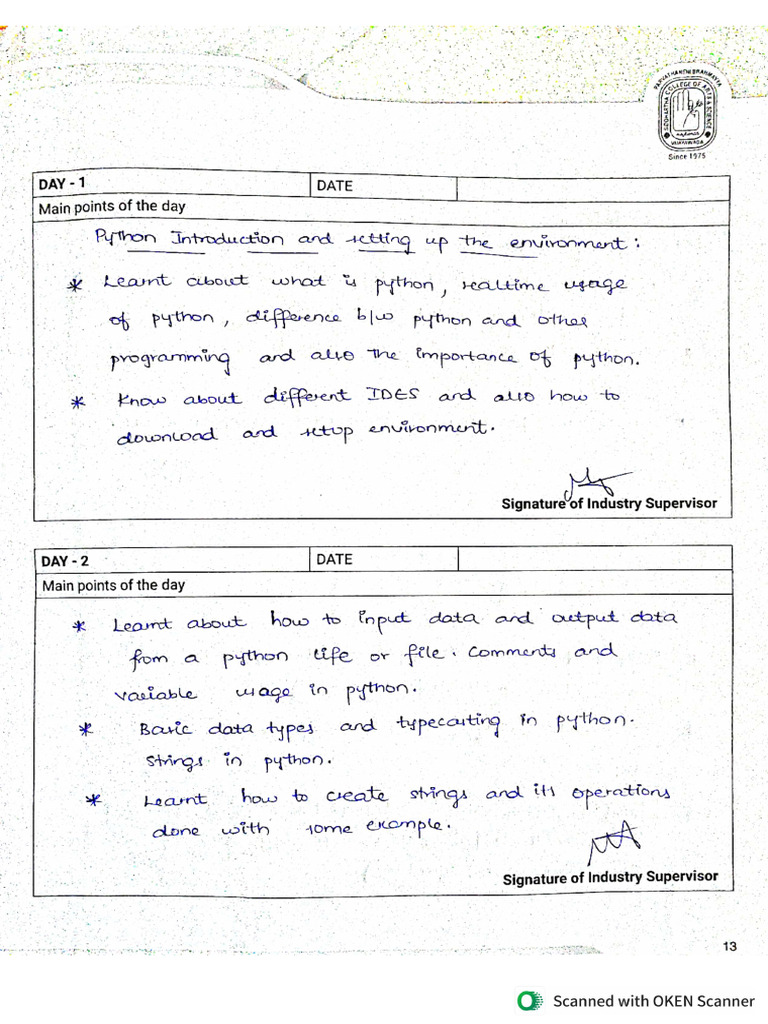 PARVATHANENI BRAHMAYYA
SIDDHARTHA COLLEGE OF ARTS & SCIENCE
VIJAYAWADA
Since 1975
DAY - 1 DATE
Main points of the day
Python Introduction and setting up the environment :
* Learnt about what is python, realtime usage
of python, difference b/w python and other
programming and also the importance of python.
* Know about different IDES and also how to
download and setup environment.
Signature of Industry Supervisor
DAY - 2 DATE
Main points of the day
* Learnt about how to input data and output data
from a python life or file. Comments and
variable usage in python.
* Basic data types and typecasting in python.
Strings in python.
* Learnt how to create strings and its operations
done with some example.
Signature of Industry Supervisor
13
Scanned with OKEN Scanner